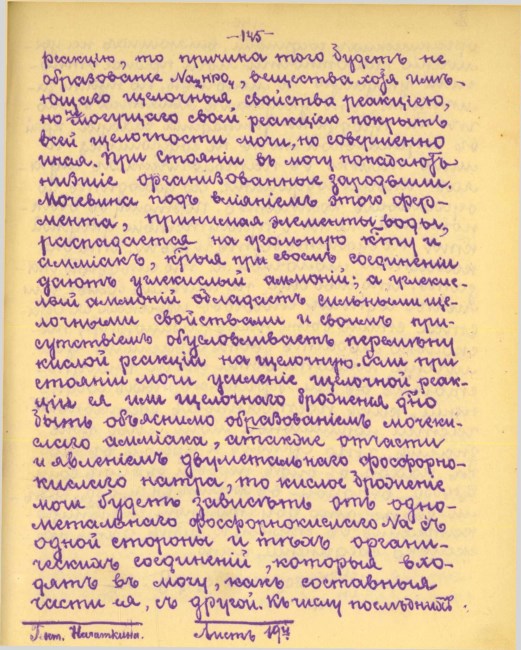 —145—
реакцію, то причина того будетъ не
образованіе Na₂HPO₄, вещества хотя имѣ-
ющаго щелочныя свойства реакціею,
но не могущаго своей реакціею покрыть
всей щелочности мочи, но совершенно
иная. При стояніи въ мочу попадаютъ
низшіе организованные зародыши.
Мочевина подъ вліяніемъ этого фер-
мента, принимая элементы воды,
распадается на угольную к͞ту и
амміакъ, к͞рыя при своемъ соединеніи
даютъ углекислый аммоній; а углекис-
лый аммоній обладаетъ сильными ще-
лочными свойствами и своимъ при-
сутствіемъ обусловливаетъ перемѣну
кислой реакціи на щелочную. Если при
стояніи мочи усиленіе щелочной реак-
ціи ея или щелочнаго броженія д͞но
быть объяснимо образованіемъ
амміака, а также отчасти
и явленіемъ двуметальнаго фосфорно-
кислаго натра, то кислое броженіе
мочи будетъ зависѣть отъ одно-
метальнаго фосфорнокислаго Na съ
одной стороны и тѣхъ органи-
ческихъ соединеній, которыя вхо-
дятъ въ мочу, какъ составныя
части ея, съ другой. Къ числу послѣднихъ
Лит. Началкина. Листъ 19й